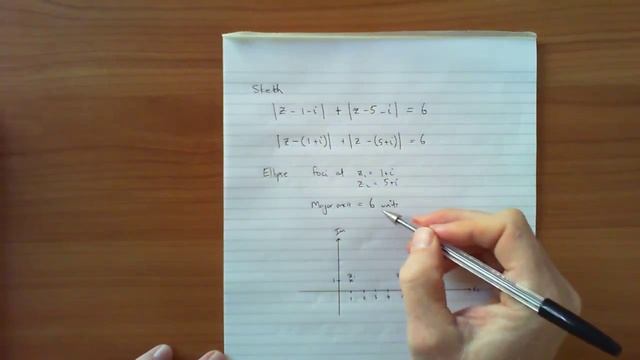 Sketh
|z - 1 - i| + |z - 5 - i| = 6
|z - (1+i)| + |z - (5+i)| = 6
Ellipse foci at z₁ = 1+i
z₂ = 5+i
Major axis = 6 units
Im
z₁
1
1 2 3 4